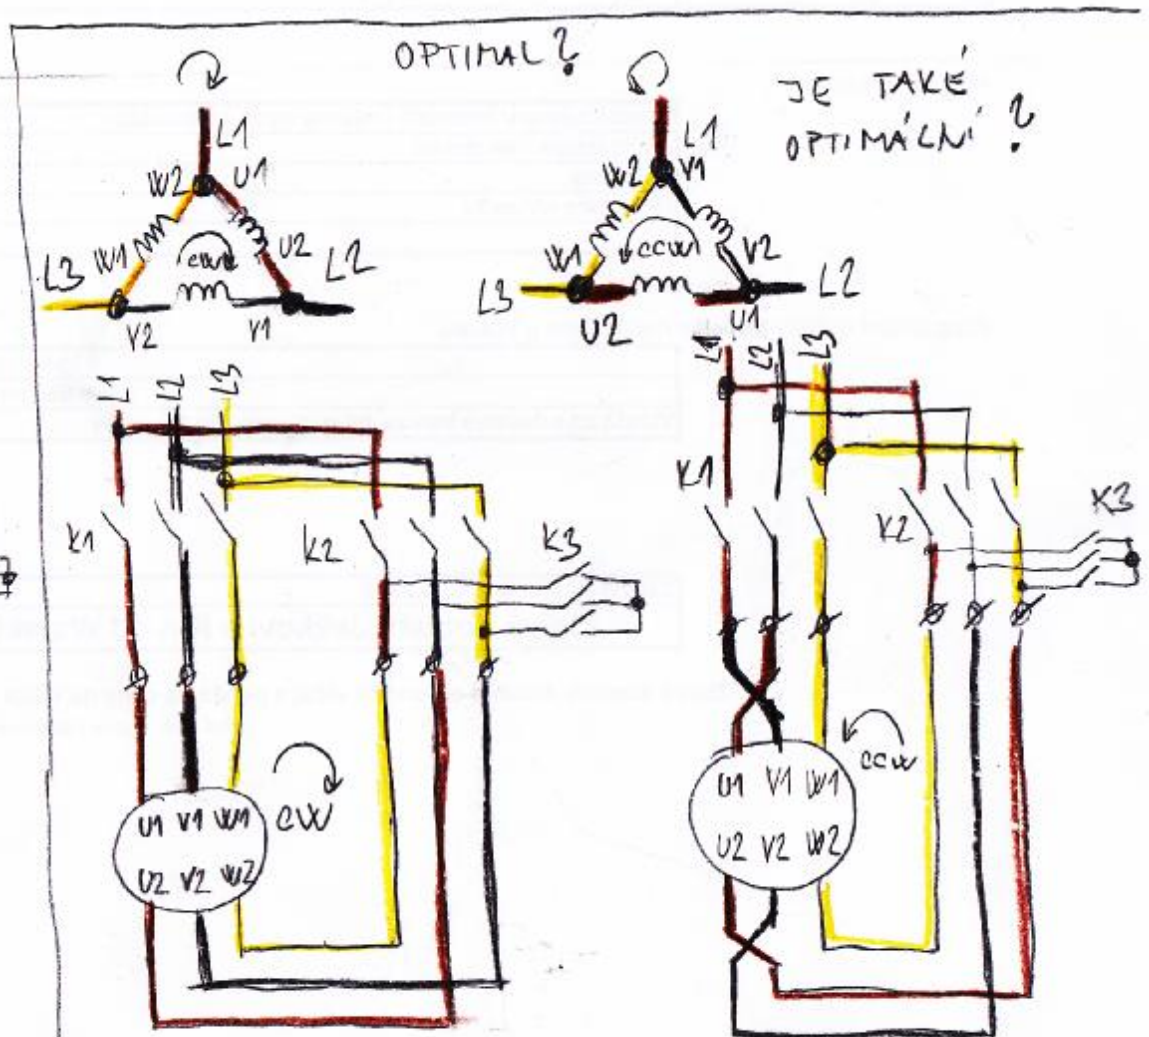 OPTIMAL?
JE TAKÉ
OPTIMÁLNÍ?
L1
W2 U1
W1 CW U2
L3 L2
V2 V1
L1
W2 V1
W1 CCW V2
L3 L2
U2 U1
L1 L2 L3
K1 K2 K3
CW
U1 V1 W1
U2 V2 W2
L1 L2 L3
K1 K2 K3
CCW
U1 V1 W1
U2 V2 W2